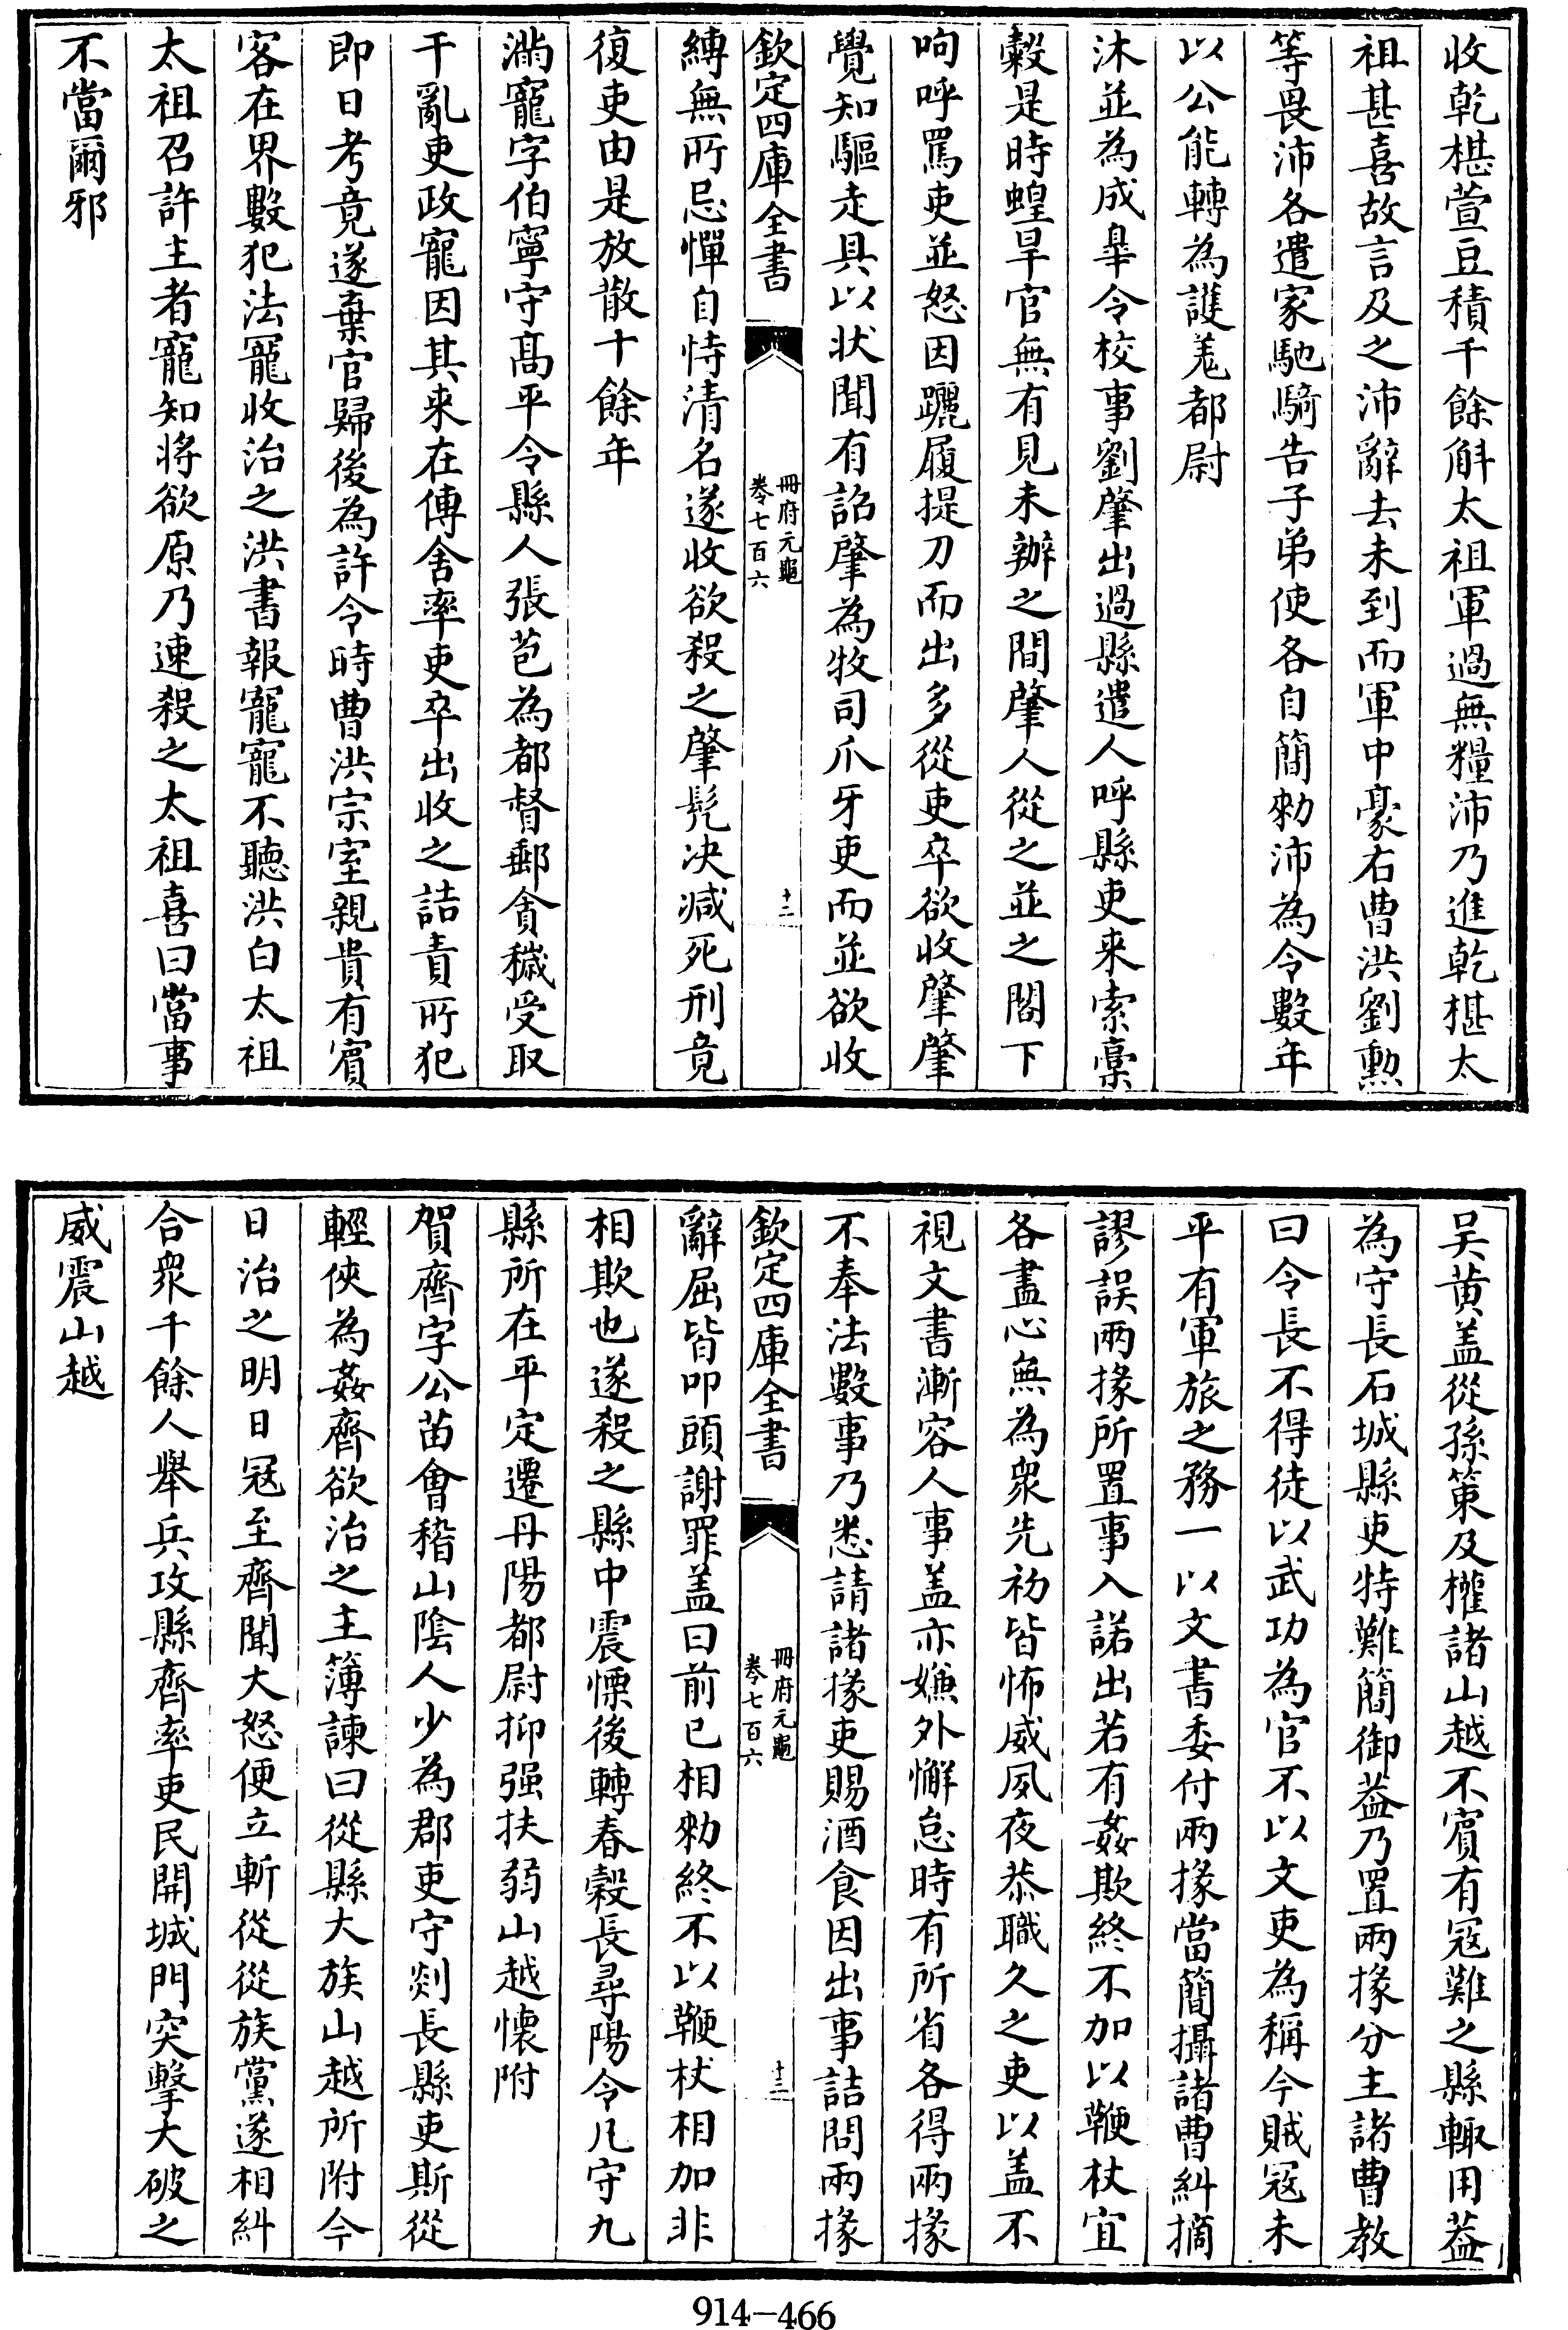 收乾椹䔵豆積千餘斛太祖軍過無糧沛乃進乾椹太
祖甚喜故言及之沛辭去未到而軍中豪右曹洪劉勲
等畏沛各遣家馳騎告子弟使各自簡勑沛為令數年
以公能轉為護羗都尉
沐並為成臯令校事劉肇出過縣遣人呼縣吏来索稾
糓是時蝗旱官無有見未辦之間肇人從之並之閤下
呴呼罵吏並怒因躧履提刀而出多從吏卒欲收肇肇
覺知驅走具以状聞有詔肇為牧司爪牙吏而並欲收
欽定四庫全書
冊府元龜
卷七百六
十二
縛無所忌憚自恃清名遂收欲殺之肇髠决减死刑竟
復吏由是放散十餘年
滿寵字伯寧守髙平令縣人張苞為都督郵貪穢受取
干亂吏政寵因其来在傳舍率吏卒出收之詰責所犯
即日考竟遂棄官歸後為許令時曹洪宗室親貴有賓
客在界數犯法寵收治之洪書報寵寵不聽洪白太祖
太祖召許主者寵知将欲原乃速殺之太祖喜曰當事
不當爾邪
吴黄盖從孫策及權諸山越不賓有冦難之縣輙用葢
為守長石城縣吏特難簡御葢乃置兩掾分主諸曹教
曰令長不得徒以武功為官不以文吏為稱今賊冦未
平有軍旅之務一以文書委付兩掾當簡攝諸曹糾摘
謬誤兩掾所置事入諾出若有姦欺終不加以鞭杖宜
各盡心無為衆先初皆怖威夙夜恭職久之吏以盖不
視文書漸容人事盖亦嫌外懈怠時有所省各得兩掾
不奉法數事乃悉請諸掾吏賜酒食因出事詰問兩掾
欽定四庫全書
冊府元龜
卷七百六
十三
辭屈皆叩頭謝罪盖曰前已相勑終不以鞭杖相加非
相欺也遂殺之縣中震慄後轉春榖長尋陽令凡守九
縣所在平定遷丹陽都尉抑强扶弱山越懐附
賀齊字公苗會稽山陰人少為郡吏守剡長縣吏斯從
輕俠為姦齊欲治之主簿諫曰從縣大族山越所附今
日治之明日冦至齊聞大怒便立斬從從族黨遂相糾
合衆千餘人舉兵攻縣齊率吏民開城門突擊大破之
威震山越
914-466